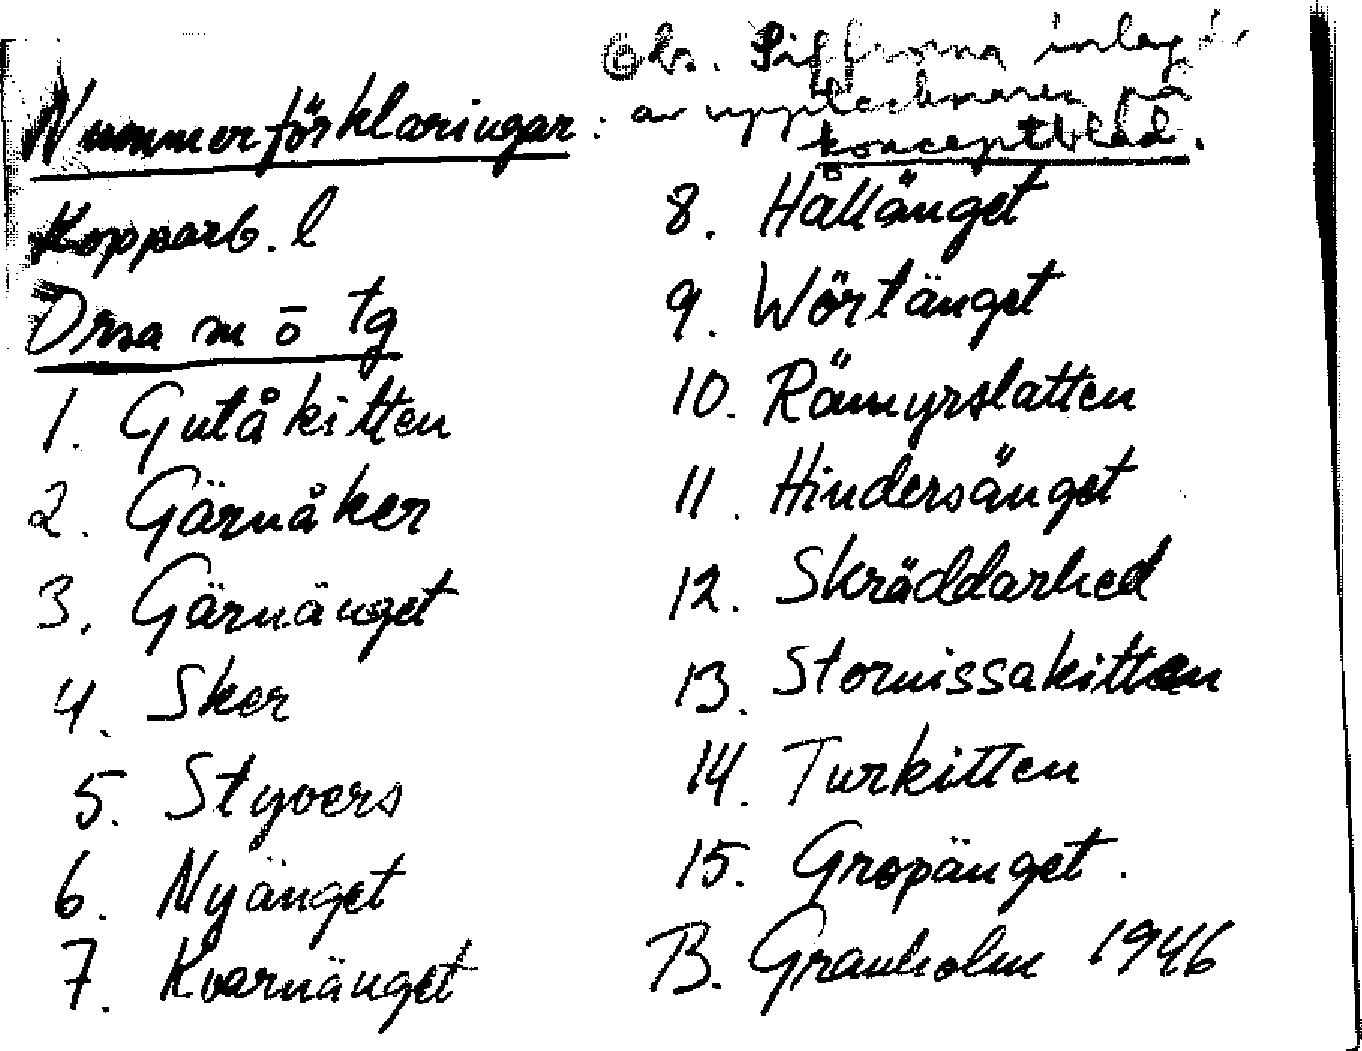 Obs. Siffrorna inlagda
Nummerförklaringar: av upptecknaren på
konceptblad.
Kopparb. l
Orsa sn ö tg
1. Gutåkitten
2. Gärnåker
3. Gärnänget
4. Sker
5. Styvers
6. Nyänget
7. Kvarnänget
8. Hållänget
9. Wörtänget
10. Rämyrslatten
11. Hindersänget
12. Skräddarhed
13. Stornissakitten
14. Turkitten
15. Gropänget.
B. Granholm 1946